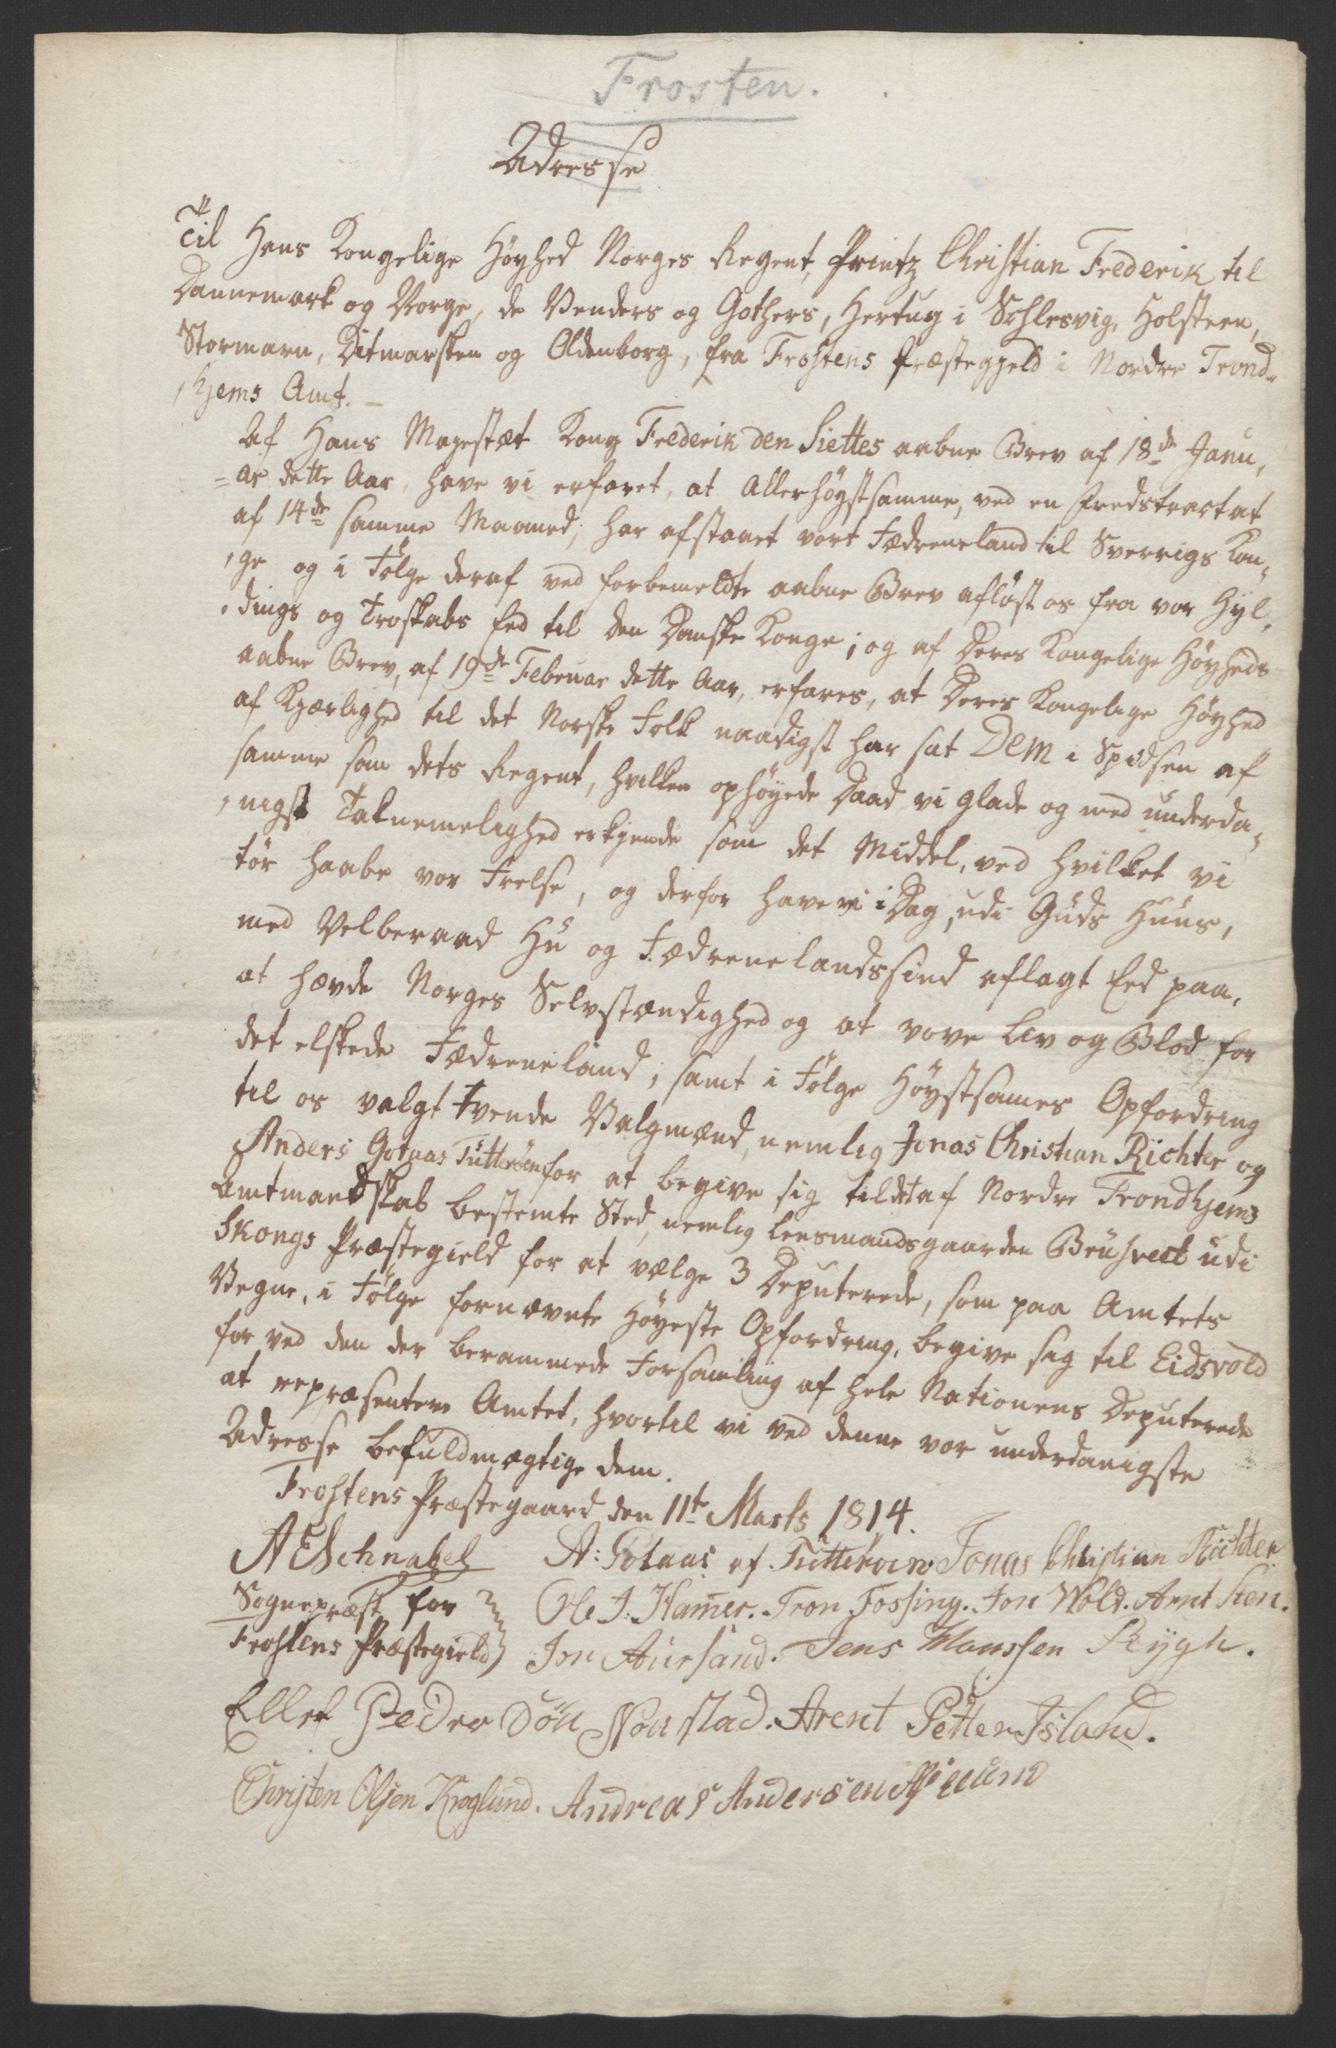 Frosten.
Adresse
Til Hans Kongelige Høyhed Norges Regent, Printz Christian Frederik til
Dannemark og Norge, de Venders og Gothers, Hertug i Schlesvig, Holsteen,
Stormarn, Ditmarsken og Oldenborg, fra Frostens Præstegjeld i Nordre Trond-
hjems Amt. —
Af Hans Majestæt Kong Frederik den Siettes aabne Brev af 18de Janu-
-ar dette Aar, have vi erfaret, at Allerhøystsamme, ved en Fredstractat
af 14de samme Maaned, har afstaaet vort Fædreneland til Sverrigs Kon-
ge og i Følge deraf ved forbemeldte aabne Brev afløst os fra vor Hyl-
dings og Troskabs Eed til den Danske Konge; og af Deres Kongelige Høyheds
aabne Brev, af 19de Februar dette Aar, erfares, at Deres Kongelige Høyhed
af Kjærlighed til det Norske Folk naadigst har sat Dem i Spidsen af
samme som dets Regent, hvilken ophøyede Daad vi glade og med underda-
nigst Taknemelighed erkjende som det Middel, ved hvilket vi
tør haabe vor Frelse, og derfor have vi i Dag, udi Guds Huus,
med Velberaad Hu og Fædrenelandssind aflagt Eed paa,
at hævde Norges Selvstændighed og at vove Liv og Blod for
det elskede Fædreneland; samt i Følge Høystsames Opfordring
til os valgt tvende Valgmænd, nemlig Jonas Christian Richter og
Anders Gotaas Tutterøen for at begive sig til det af Nordre Trondhjems
Amtmandskab bestemte Sted, nemlig Lensmandsgaarden Bruhveet udi
Skongs Præstegield for at vælge 3 Deputerede, som paa Amtets
Vegne, i Følge fornævnte Høyeste Opfordring, begive sig til Eidsvold
for ved den der berammede Forsamling af hele Nationens Deputerede
at repræsentere Amtet, hvortil vi ved denne vor underdanigste
Adresse befuldmægtige dem.
Frostens Præstegaard den 11te Marts 1814.
A E Schnabel A: Gotaas af Tutterøen. Jonas Christian Richter
Sognepræst for Ole J. Hamer. Tron Fossing. Jon Wold. Arnt Sten.
Frostens Præstegield Jon Auesand. Jens Monssen Rygh.
Ellef Peder Nou stad. Arent Petter Island.
Christen Olsen Kroglund. Andreas Andersen